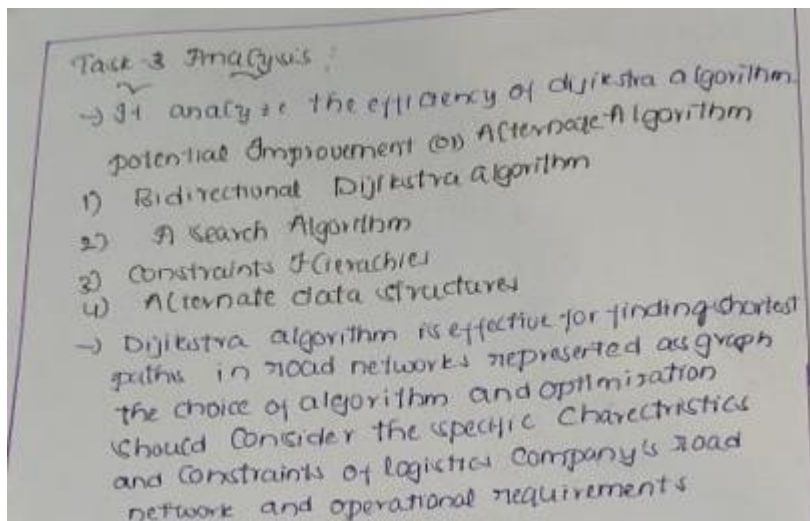 Task 3 Analysis :
→ It analyze the efficiency of dijikstra algorithm
potential Improvement (or) Alternate Algorithm
1) Bidirectional Dijikstra algorithm
2) A search Algorithm
3) Constraints Hierachies
4) Alternate data structures
→ Dijikstra algorithm is effective for finding shortest
paths in road networks represented as graph
the choice of algorithm and optimization
should consider the specific charectristics
and constraints of logistics company's road
network and operational requirements